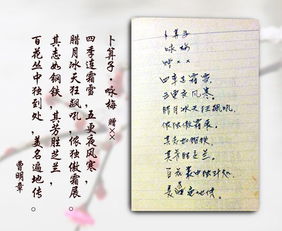 卜算子·咏梅 赠××
四季连霜雪,五更夜风寒,
腊月冰天狂飙吼,依独傲霜展。
其志如钢铁,其芳胜芝兰,
百花丛中独刻处,美名遍地传。
曹明章
卜算子
咏梅
赠××
四季连霜雪,
五更夜风寒,
腊月冰天狂飙吼,
依独傲霜展。
其志如钢铁,
其芳胜芝兰,
百花丛中
美名遍地传。